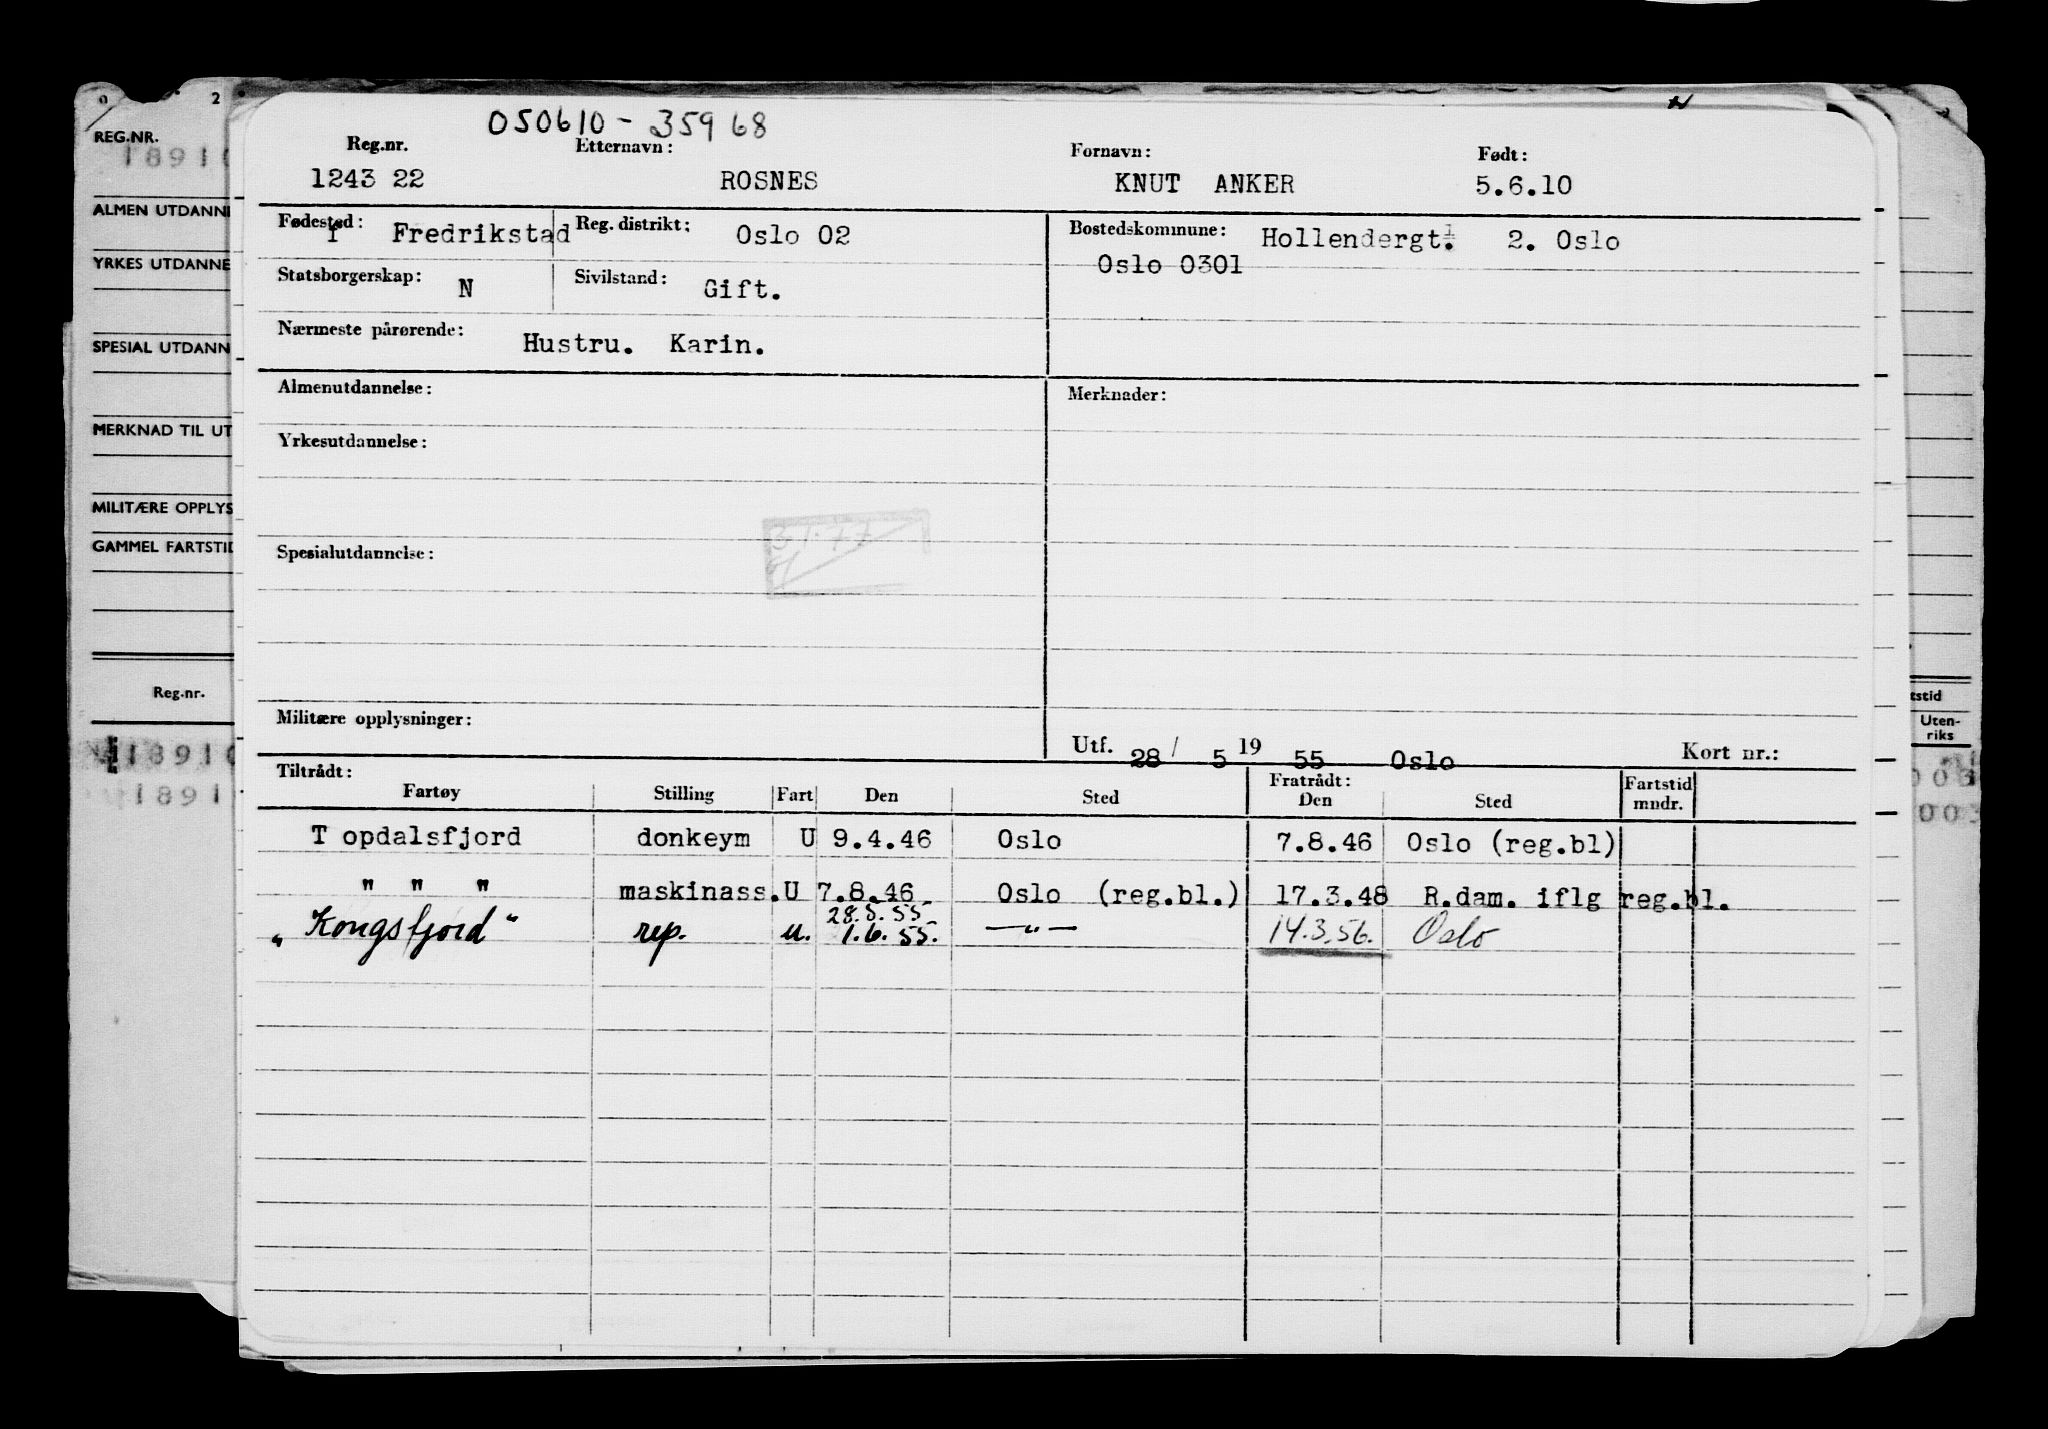 050610 - 35968
Reg.nr. Etternavn: Fornavn: Født:
1243 22 ROSNES KNUT ANKER 5.6.10
Fødested: Fredrikstad Reg. distrikt: Oslo 02 Bostedskommune: Hollendergt. 2. Oslo
Oslo 0301
Statsborgerskap: N Sivilstand: Gift.
Nærmeste pårørende: Hustru. Karin.
Almenutdannelse: Merknader:
Yrkesutdannelse:
Spesialutdannelse:
Militære opplysninger:
Utf. 28 / 5 19 55 Oslo Kort nr.:
Tiltrådt: Fratrådt: Fartstid
Fartøy Stilling Fart Den Sted Den Sted mndr.
T opdalsfjord donkeym U 9.4.46 Oslo 7.8.46 Oslo (reg.bl)
" " " maskinass. U 7.8.46 Oslo (reg.bl.) 17.3.48 R.dam. iflg reg.bl.
28.5.55.
„Kongsfjord" rep. u. 1.6.55. —"— 14.3.56. Oslo
2
REG.NR.
1891
ALMEN UTDANN
YRKES UTDANNE
SPESIAL UTDANN
MERKNAD TIL UT
MILITÆRE OPPLYS
GAMMEL FARTSTID
Reg.nr.
1891
1891
tstid
Uten-
riks
003
003